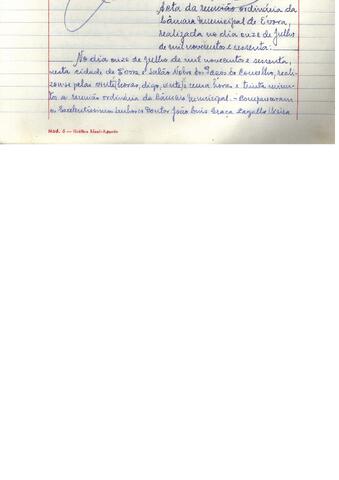 Acta da reunião ordinária da
Câmara Municipal de Évora,
realizada no dia onze de julho
de mil novecentos e sessenta:
No dia onze de julho de mil novecentos e sessenta,
nesta cidade de Évora e Salão Nobre dos Paços do Concelho, reali-
zou-se pelas vinte horas, digo, vinte e uma horas e trinta minu-
tos a reunião ordinária da Câmara Municipal. - Compareceram
os Excelentíssimos Senhores Doutor João Luis
Mod. 6 — Gráfica